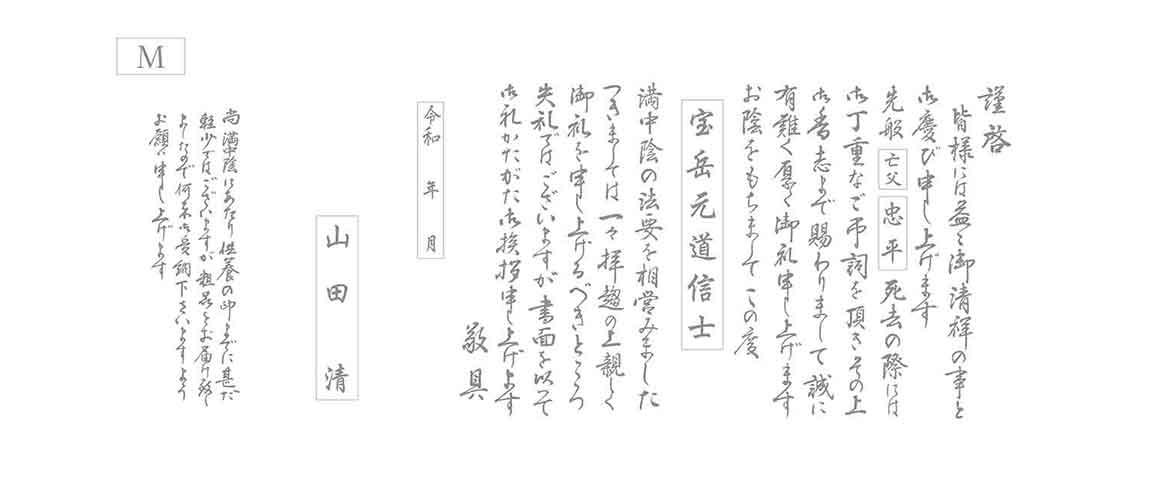 M
謹啓
皆様には益々御清祥の事と
御慶び申し上げます
先般 亡父 忠平 死去の際には
御丁重なご弔詞を頂きその上
御香志まで賜わりまして誠に
有難く厚く御礼申し上げます
お陰をもちましてこの度
宝岳元道信士
満中陰の法要を相営みました
つきましては一々拝趨の上親しく
御礼を申し上げるべきところ
失礼ではございますが書面を以って
御礼かたがた御挨拶申し上げます
敬具
令和 年 月
山田 清
尚 満中陰にあたり供養の印までに甚だ
軽少ではございますが粗品をお届け致し
ましたので何卒御受納下さいますよう
お願い申し上げます